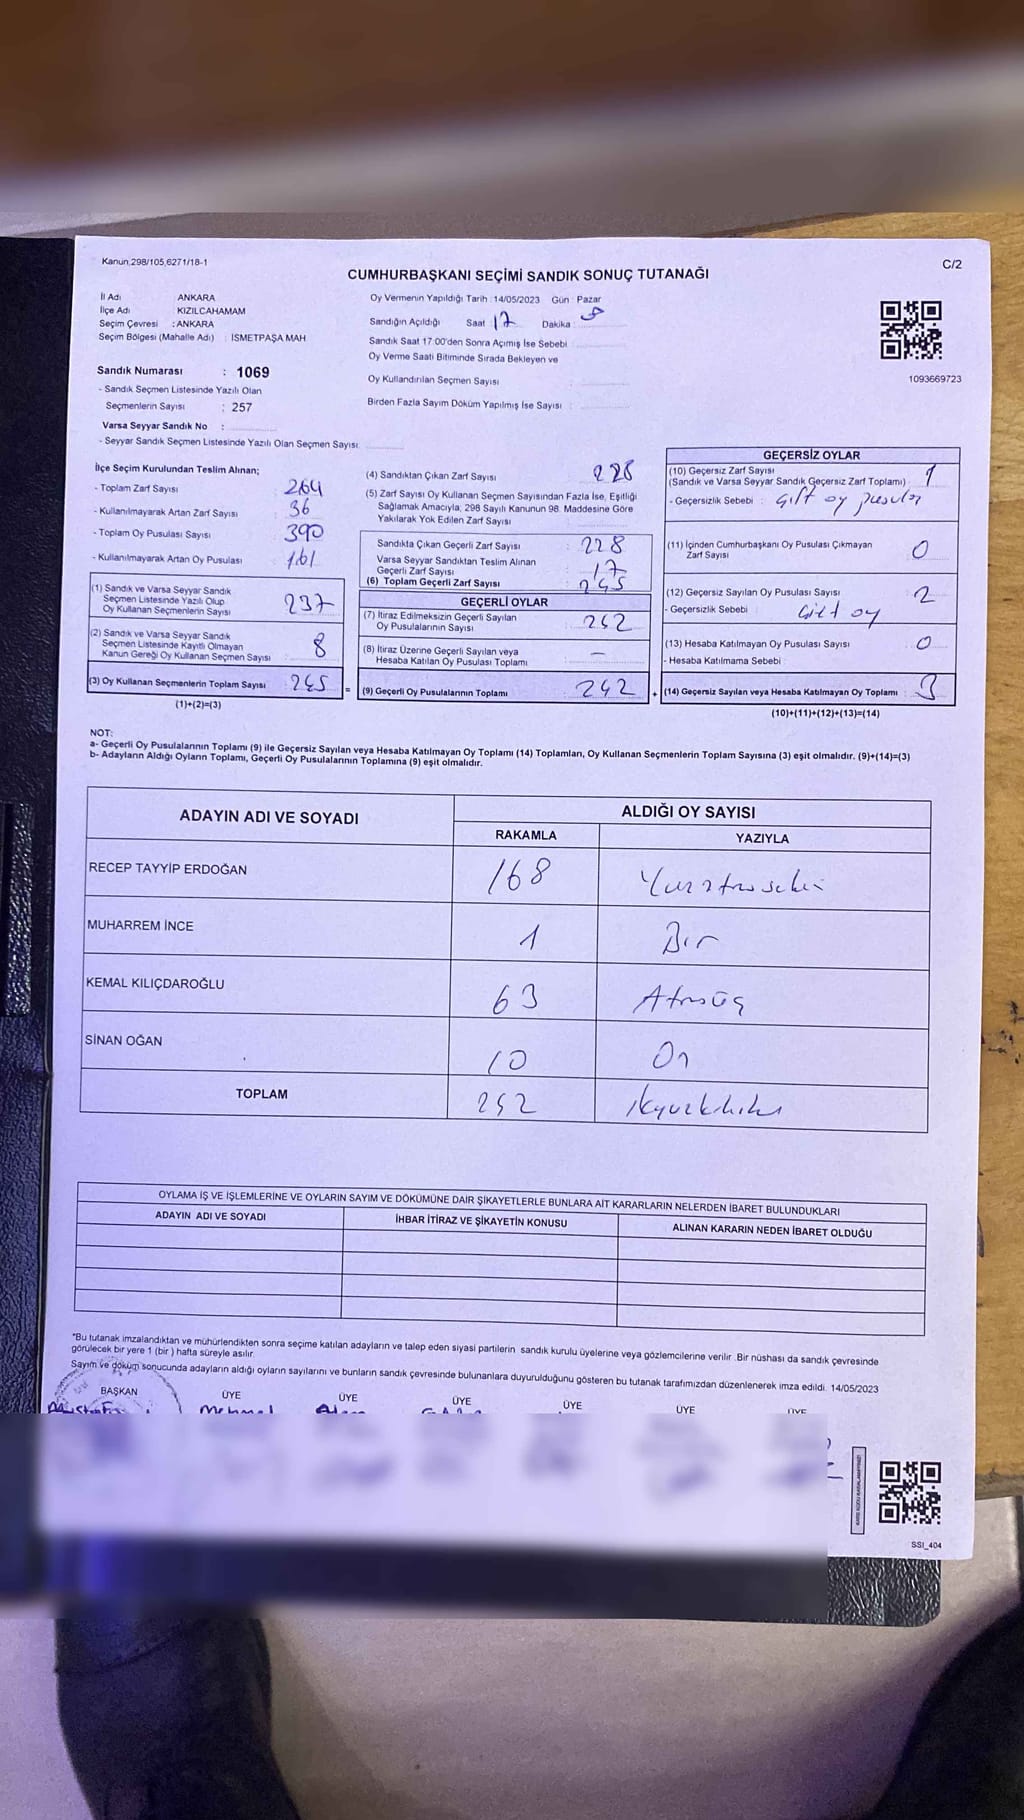 Kanun,298/105,6271/18-1
C/2
CUMHURBAŞKANI SEÇİMİ SANDIK SONUÇ TUTANAĞI
İl Adı ANKARA
İlçe Adı KIZILCAHAMAM
Seçim Çevresi : ANKARA
Seçim Bölgesi (Mahalle Adı) : İSMETPAŞA MAH
Oy Vermenin Yapıldığı Tarih : 14/05/2023 Gün : Pazar
Sandığın Açıldığı Saat 17 Dakika :
Sandık Saat 17:00'den Sonra Açımış İse Sebebi
Oy Verme Saati Bitiminde Sırada Bekleyen ve
Oy Kullandırılan Seçmen Sayısı :
Birden Fazla Sayım Döküm Yapılmış İse Sayısı :
1093669723
Sandık Numarası : 1069
- Sandık Seçmen Listesinde Yazılı Olan
Seçmenlerin Sayısı : 257
Varsa Seyyar Sandık No :
- Seyyar Sandık Seçmen Listesinde Yazılı Olan Seçmen Sayısı
İlçe Seçim Kurulundan Teslim Alınan;
- Toplam Zarf Sayısı : 264
- Kullanılmayarak Artan Zarf Sayısı : 36
- Toplam Oy Pusulası Sayısı : 390
- Kullanılmayarak Artan Oy Pusulası : 161
(1) Sandık ve Varsa Seyyar Sandık
Seçmen Listesinde Yazılı Olup
Oy Kullanan Seçmenlerin Sayısı : 237
(2) Sandık ve Varsa Seyyar Sandık
Seçmen Listesinde Kayıtlı Olmayan
Kanun Gereği Oy Kullanan Seçmen Sayısı : 8
(3) Oy Kullanan Seçmenlerin Toplam Sayısı : 245 =
(1)+(2)=(3)
(4) Sandıktan Çıkan Zarf Sayısı 228
(5) Zarf Sayısı Oy Kullanan Seçmen Sayısından Fazla İse, Eşitliği
Sağlamak Amacıyla; 298 Sayılı Kanunun 98. Maddesine Göre
Yakılarak Yok Edilen Zarf Sayısı
Sandıkta Çıkan Geçerli Zarf Sayısı : 228
Varsa Seyyar Sandıktan Teslim Alınan
Geçerli Zarf Sayısı : 17
(6) Toplam Geçerli Zarf Sayısı 245
GEÇERLİ OYLAR
(7) İtiraz Edilmeksizin Geçerli Sayılan
Oy Pusulalarının Sayısı : 242
(8) İtiraz Üzerine Geçerli Sayılan veya
Hesaba Katılan Oy Pusulası Toplamı : –
(9) Geçerli Oy Pusulalarının Toplamı : 242 +
GEÇERSİZ OYLAR
(10) Geçersiz Zarf Sayısı
(Sandık ve Varsa Seyyar Sandık Geçersiz Zarf Toplamı) : 1
- Geçersizlik Sebebi : Çift oy pusulası
(11) İçinden Cumhurbaşkanı Oy Pusulası Çıkmayan
Zarf Sayısı 0
(12) Geçersiz Sayılan Oy Pusulası Sayısı : 2
- Geçersizlik Sebebi : Çift oy
(13) Hesaba Katılmayan Oy Pusulası Sayısı : 0
- Hesaba Katılmama Sebebi
(14) Geçersiz Sayılan veya Hesaba Katılmayan Oy Toplamı : 3
(10)+(11)+(12)+(13)=(14)
NOT:
a- Geçerli Oy Pusulalarının Toplamı (9) ile Geçersiz Sayılan veya Hesaba Katılmayan Oy Toplamı (14) Toplamları, Oy Kullanan Seçmenlerin Toplam Sayısına (3) eşit olmalıdır. (9)+(14)=(3)
b- Adayların Aldığı Oyların Toplamı, Geçerli Oy Pusulalarının Toplamına (9) eşit olmalıdır.
ADAYIN ADI VE SOYADI ALDIĞI OY SAYISI
RAKAMLA YAZIYLA
RECEP TAYYİP ERDOĞAN 168 Yüzatmışsekiz
MUHARREM İNCE 1 Bir
KEMAL KILIÇDAROĞLU 63 Atmışüç
SİNAN OĞAN 10 On
TOPLAM 242 ikiyüzkırkiki
OYLAMA İŞ VE İŞLEMLERİNE VE OYLARIN SAYIM VE DÖKÜMÜNE DAİR ŞİKAYETLERLE BUNLARA AİT KARARLARIN NELERDEN İBARET BULUNDUKLARI
ADAYIN ADI VE SOYADI İHBAR İTİRAZ VE ŞİKAYETİN KONUSU ALINAN KARARIN NEDEN İBARET OLDUĞU
*Bu tutanak imzalandıktan ve mühürlendikten sonra seçime katılan adayların ve talep eden siyasi partilerin sandık kurulu üyelerine veya gözlemcilerine verilir .Bir nüshası da sandık çevresinde
görülecek bir yere 1 (bir ) hafta süreyle asılır.
Sayım ve döküm sonucunda adayların aldığı oyların sayılarını ve bunların sandık çevresinde bulunanlara duyurulduğunu gösteren bu tutanak tarafımızdan düzenlenerek imza edildi. 14/05/2023
BAŞKAN ÜYE ÜYE ÜYE ÜYE ÜYE ÜYE
SSI_404